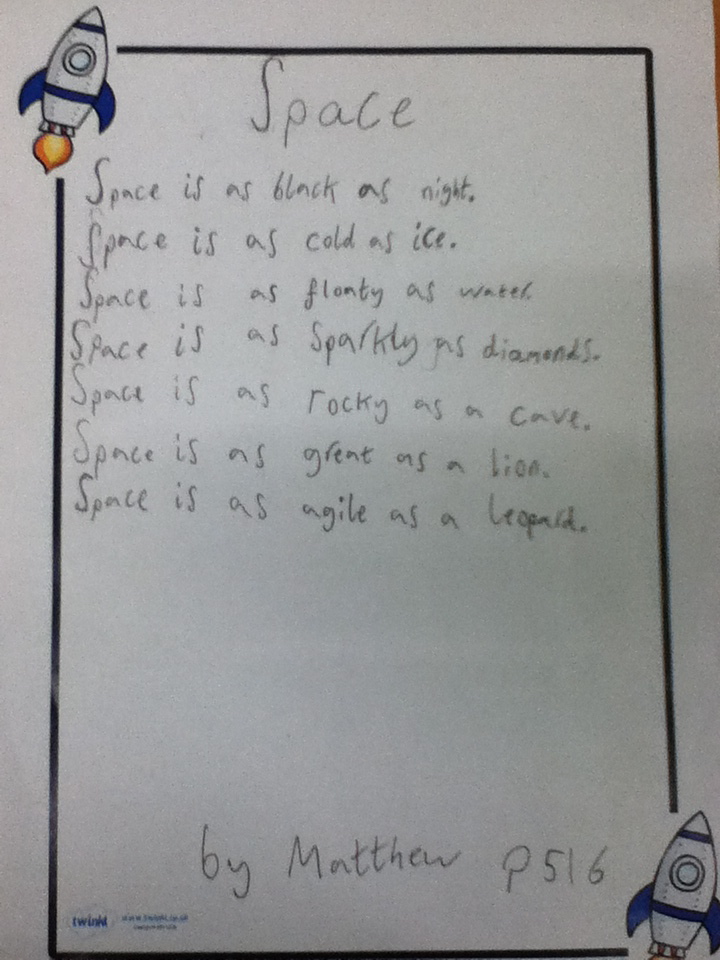 Space
Space is as black as night.
Space is as cold as ice.
Space is as floaty as water.
Space is as sparkly as diamonds.
Space is as rocky as a cave.
Space is as great as a lion.
Space is as agile as a leopard.
by Matthew P5/6
twinkl www.twinkl.co.uk